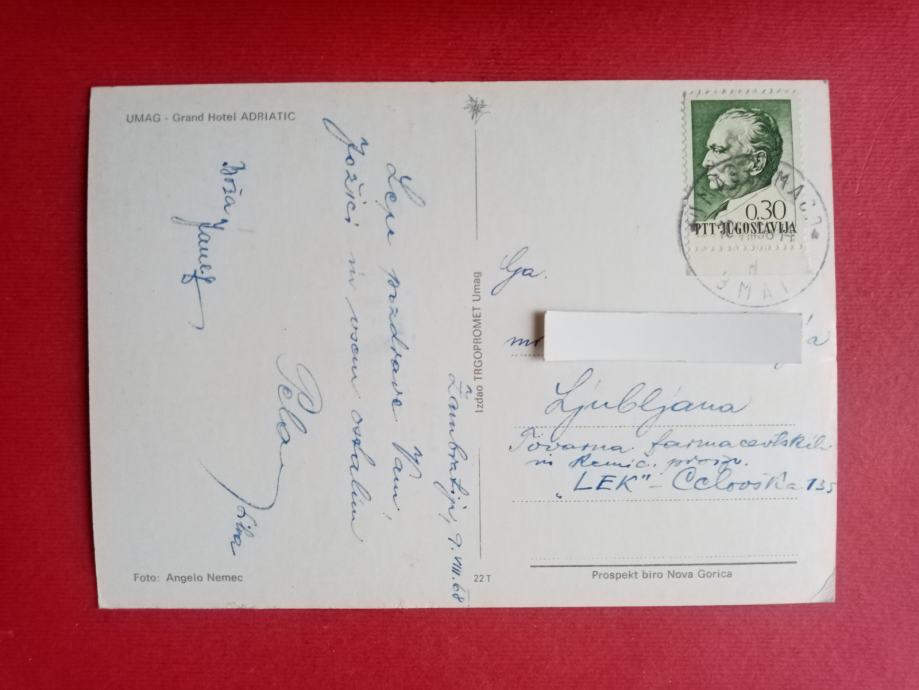 UMAG - Grand Hotel ADRIATIC
Lepe pozdrave Vam
Jožici in vsem ostalim
Boža
Žambratija, 9. VIII. 68
Izdao TRGOPROMET Umag
0.30
PTT JUGOSLAVIJA
Ga.
Ljubljana
Tovarna farmacevtskih
in kemič. proizv.
"LEK" - Celovška 135
Foto: Angelo Nemec
22 T
Prospekt biro Nova Gorica